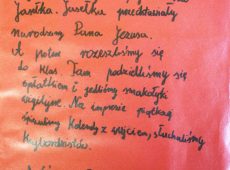 Jasełka. Jasełka przedstawiały
narodziny Pana Jezusa.
A potem rozeszliśmy się
do klas. Tam podzieliliśmy się
opłatkiem i jedliśmy smakołyki
wigilijne. Na imprezie
śpiewaliśmy kolendy z słuchaliśmy